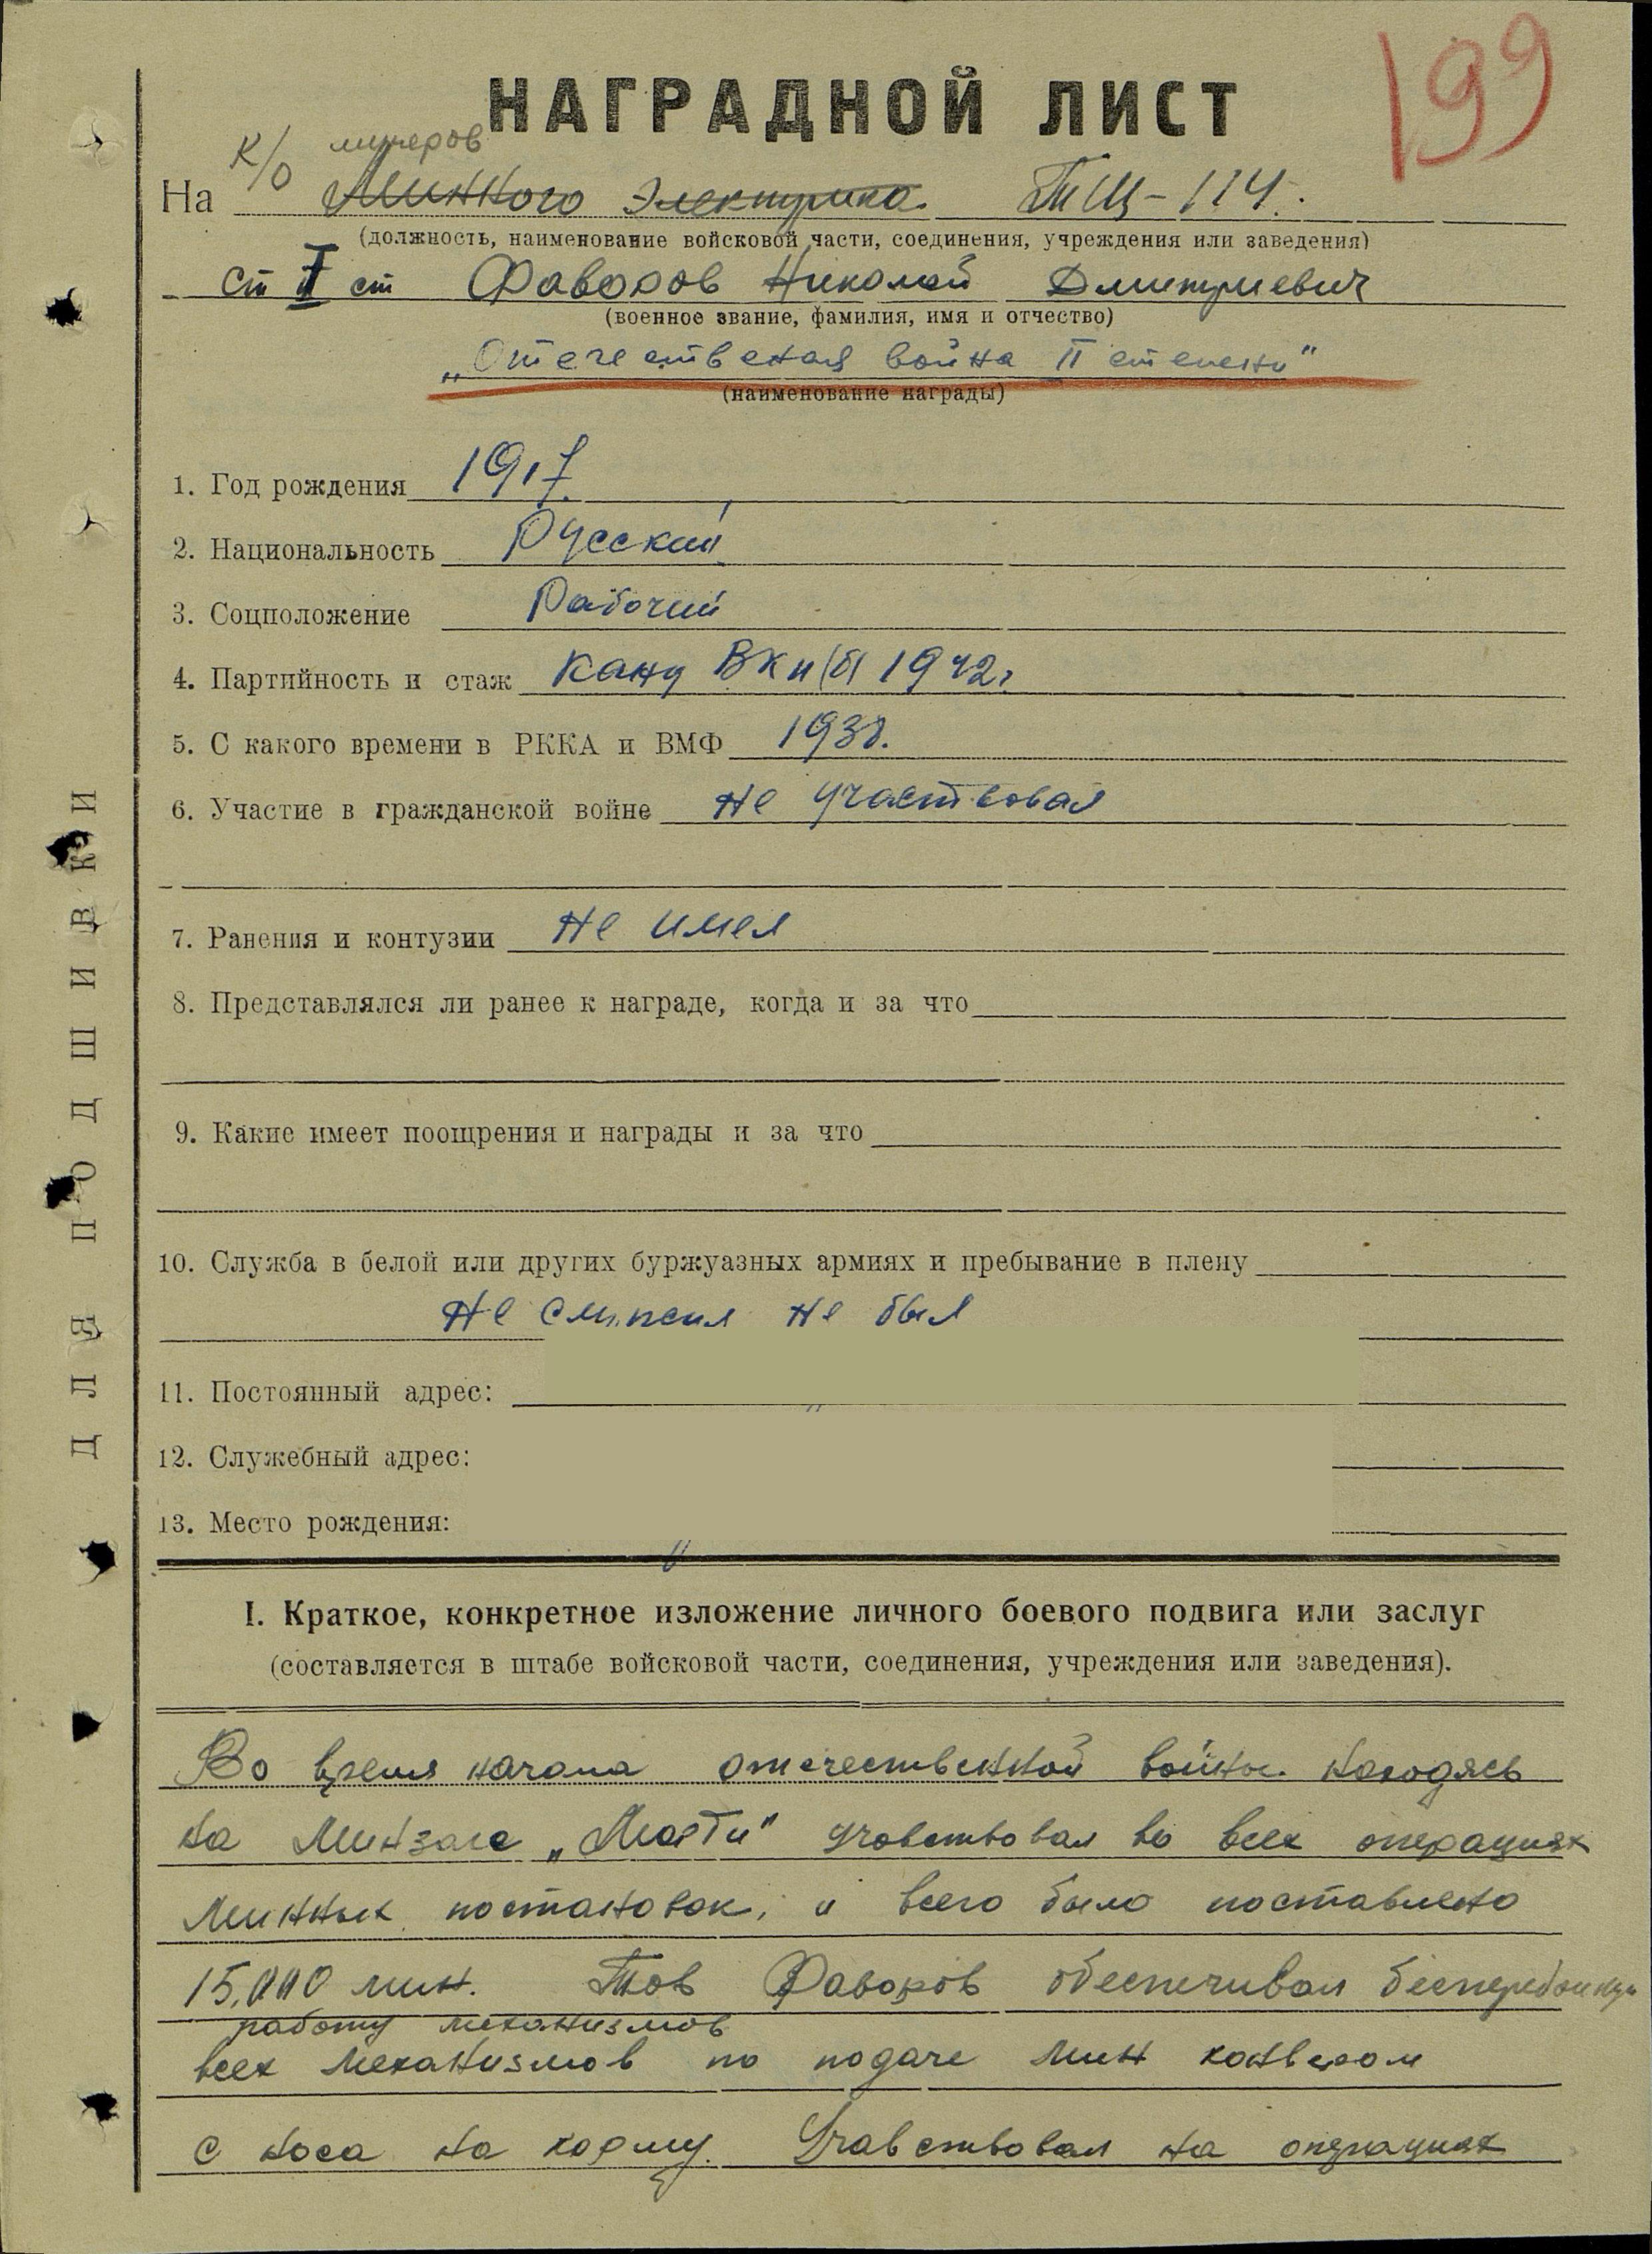 199
НАГРАДНОЙ ЛИСТ
к/о минеров
На Минного электрика ТЩ-114.
(должность, наименование войсковой части, соединения, учреждения или заведения)
ст I ст Фаворов Николай Дмитриевич
(военное звание, фамилия, имя и отчество)
„Отечественая война II степени"
(наименование награды)
1. Год рождения 1917.
2. Национальность Русский
3. Соцположение Рабочий
4. Партийность и стаж Канд ВКП(б) 1942г
5. С какого времени в РККА и ВМФ 1938.
6. Участие в гражданской войне не участвовал
7. Ранения и контузии не имел
8. Представлялся ли ранее к награде, когда и за что
9. Какие имеет поощрения и награды и за что
10. Служба в белой или других буржуазных армиях и пребывание в плену
не не был
11. Постоянный адрес:
12. Служебный адрес:
13. Место рождения:
I. Краткое, конкретное изложение личного боевого подвига или заслуг
(составляется в штабе войсковой части, соединения, учреждения или заведения).
Во время начала отечественной войны. находясь
на Минзаге „Марти" учавствовал во всех операциях
минных постановок, и всего было поставлено
15.000 мин. Тов Фаворов обеспечивал
работу механизмов
всех механизмов по подаче мин
с носа на корму. Учавствовал на операциях
ДЛЯ ПОДШИВКИ